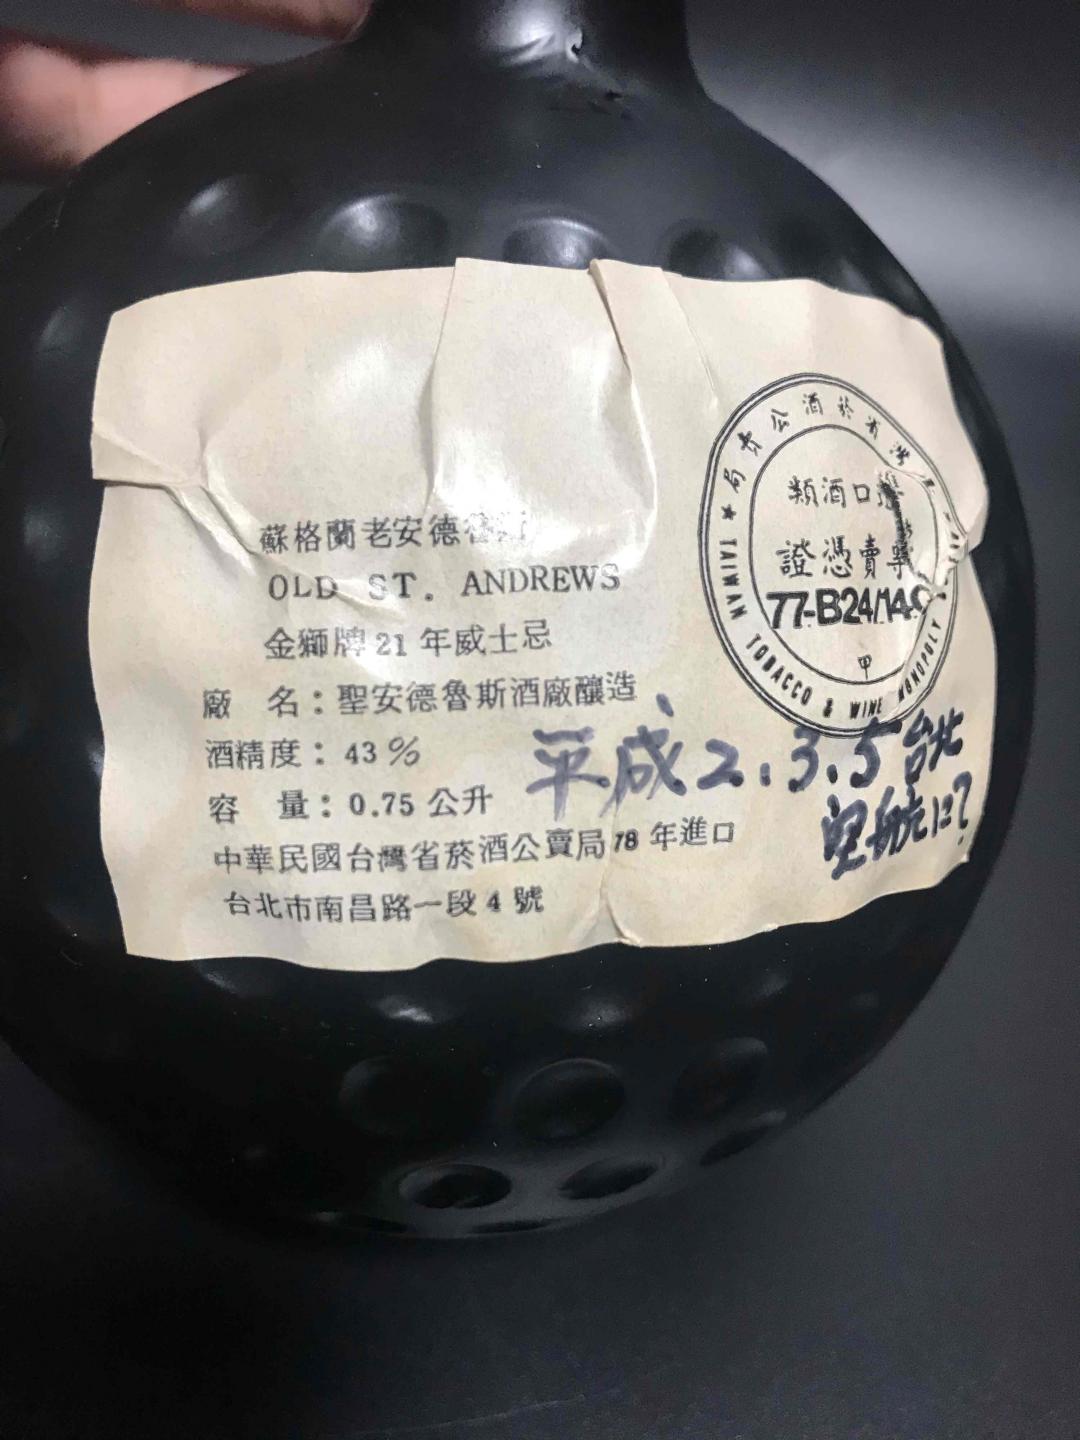 蘇格蘭老安德魯斯
OLD ST. ANDREWS
金獅牌21年威士忌
廠 名：聖安德魯斯酒廠釀造
酒精度：43%
容 量：0.75公升
中華民國台灣省菸酒公賣局78年進口
台北市南昌路一段4號
局賣公酒菸省灣
類酒口進
證憑賣專
77-B24/14
甲
★ TAIWAN TOBACCO & WINE MONOPOLY
平成2.3.5 台北
空航にて